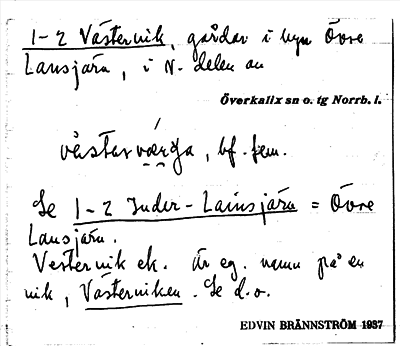 1-2 Västervik, gårdar i byn Övre
Lansjärv, i N. delen av
Överkalix sn o. tg Norrb. l.
våstərværga, bf. fem.
Se 1-2 Inder-Lainsjärv = Övre
Lansjärv.
Vestervik ek. Är eg. namn på en
vik, Västerviken. Se d.o.
EDVIN BRÄNNSTRÖM 1937